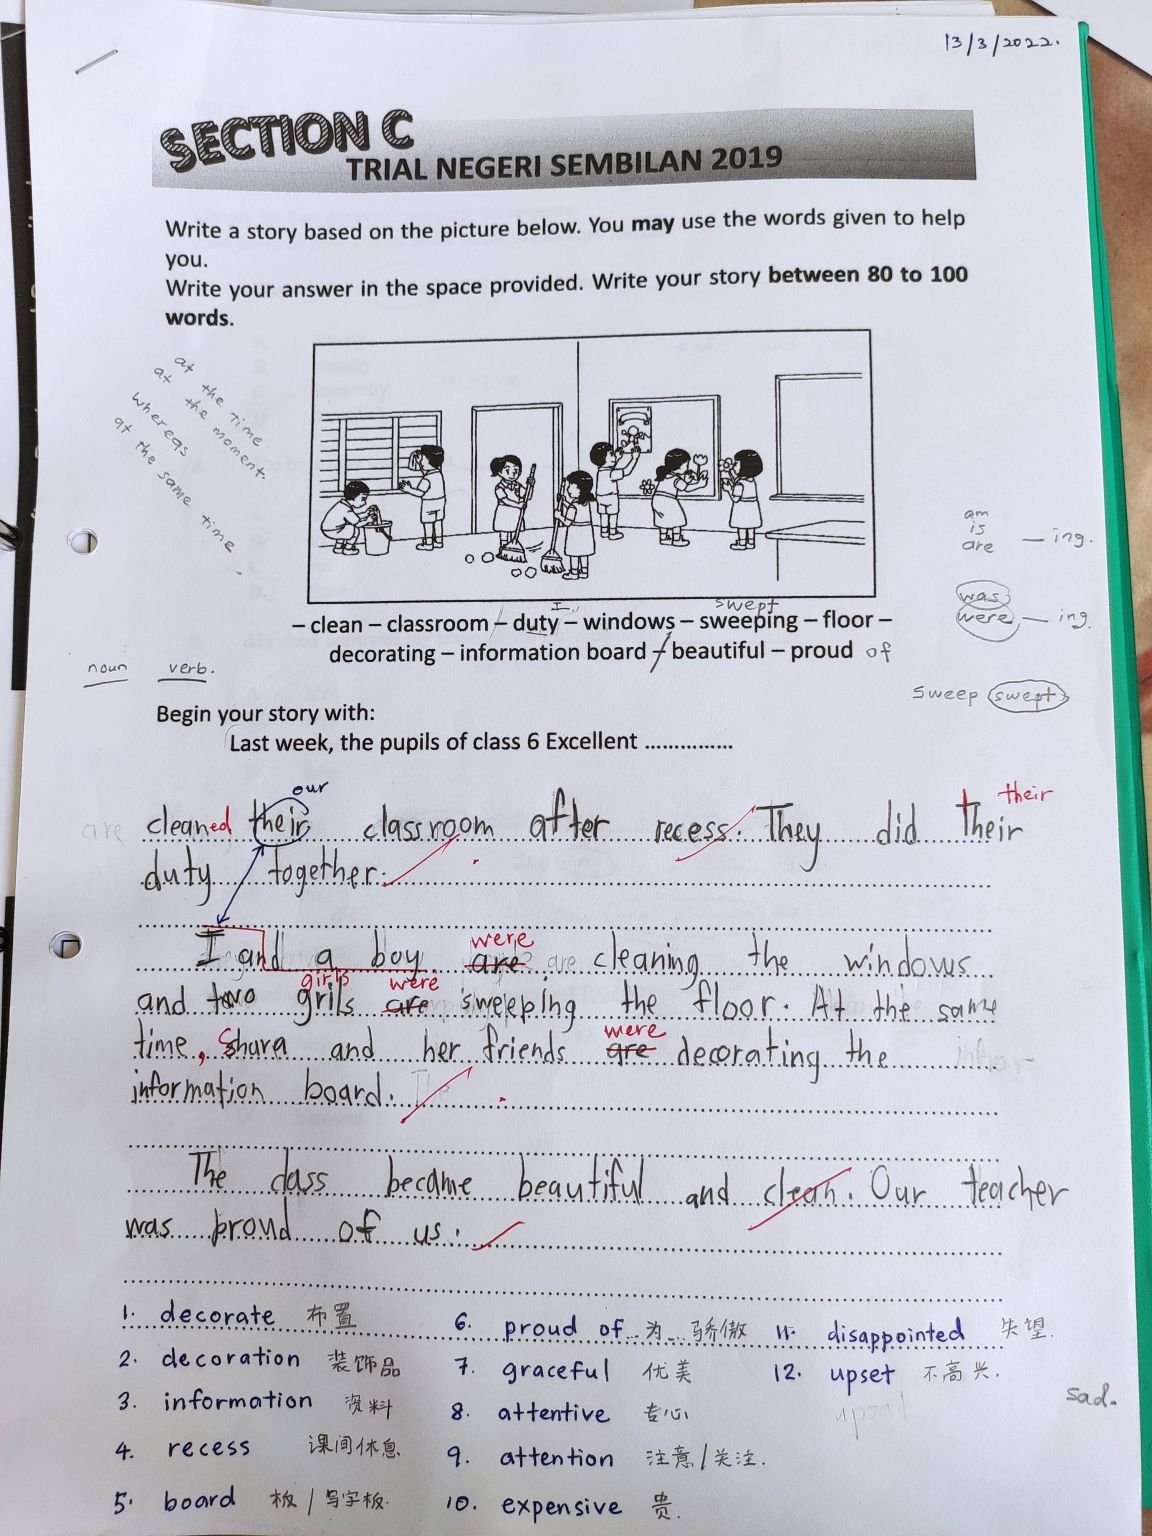 13/3/2022.
SECTION C
TRIAL NEGERI SEMBILAN 2019
Write a story based on the picture below. You may use the words given to help
you.
Write your answer in the space provided. Write your story between 80 to 100
words.
at the time
at the moment
whereas
at the same time
am
is
are — ing.
was
were — ing
I swept
– clean – classroom – duty – windows – sweeping – floor –
decorating – information board – beautiful – proud of
noun verb.
Sweep swept
Begin your story with:
Last week, the pupils of class 6 Excellent ...............
our
their
are cleaned their classroom after recess. They did their
duty together.
were
I and a boy are are cleaning the windows
girls were
and two grils are sweeping the floor. At the same
were
time, Shara and her friends are decorating the
information board.
The class became beautiful and clean. Our teacher
was proud of us.
1. decorate 布置 6. proud of 为 骄傲 11. disappointed 失望.
2. decoration 装饰品 7. graceful 优美 12. upset 不高兴.
3. information 资料 8. attentive 专心 sad.
4. recess 课间休息 9. attention 注意/关注.
5. board 板/写字板. 10. expensive 贵.